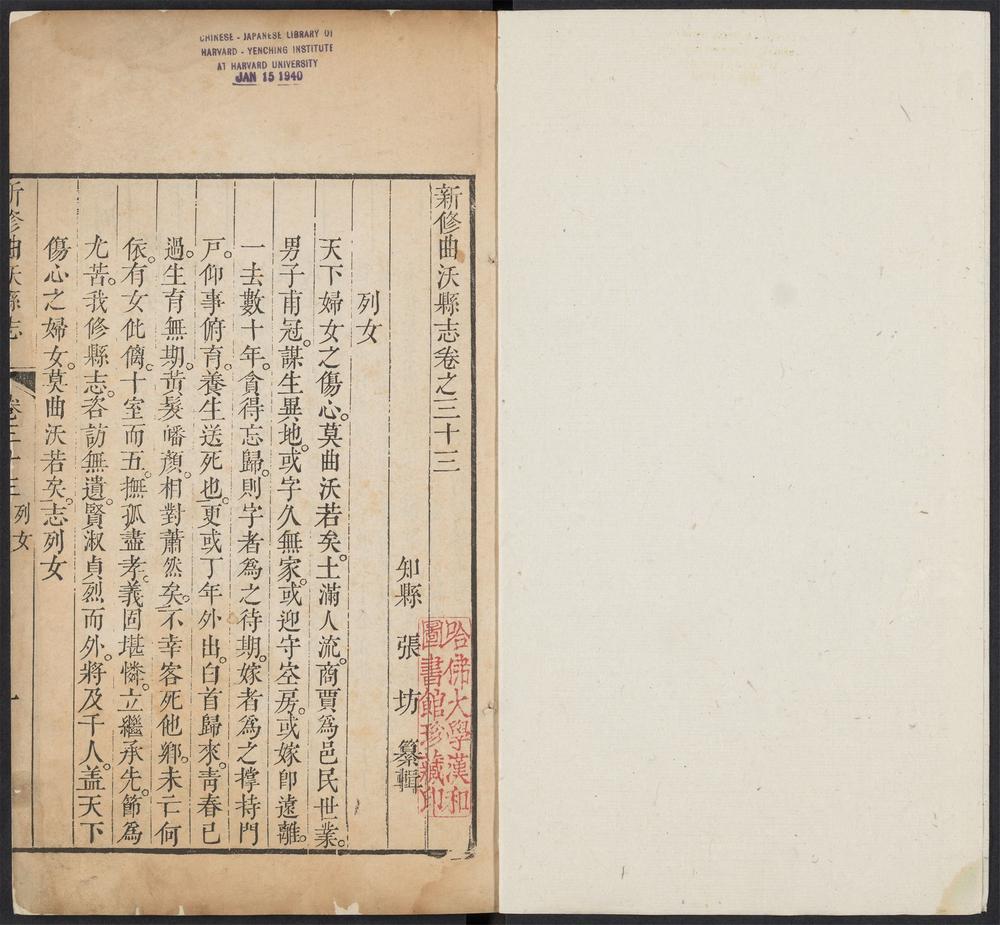 CHINESE - JAPANESE LIBRARY OF
HARVARD - YENCHING INSTITUTE
AT HARVARD UNIVERSITY
JAN 15 1940
新修曲沃縣志卷之三十三
知縣 張 坊 纂輯
哈佛大學漢和
圖書館珍藏印
列女
天下婦女之傷心。莫曲沃若矣。土滿人流。商賈爲邑民世業。
男子甫冠。謀生異地。或字久無家。或迎守空房。或嫁卽遠離。
一去數十年。貪得忘歸。則字者爲之待期。嫁者爲之撑持門
戸。仰事俯育。養生送死也。更或丁年外出。白首歸來。靑春已
過。生育無期。黃髮皤顏。相對蕭然矣。不幸客死他鄕。未亡何
依。有女仳㒧。十室而五。撫孤盡孝。義固堪憐。立繼承先。節爲
尤苦。我修縣志。咨訪無遺。賢淑貞烈而外。將及千人。盖天下
傷心之婦女。莫曲沃若矣。志列女
新修曲沃縣志 卷三十三 列女 一